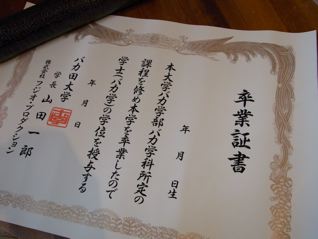 卒業証書
年 月 日生
本大学バカ学部バカ学科所定の
課程を修め本学を卒業したので
学士(バカ学)の学位を授与する
年 月 日
バカ田大学
学長 山田一郎
株式会社フジオ・プロダクション